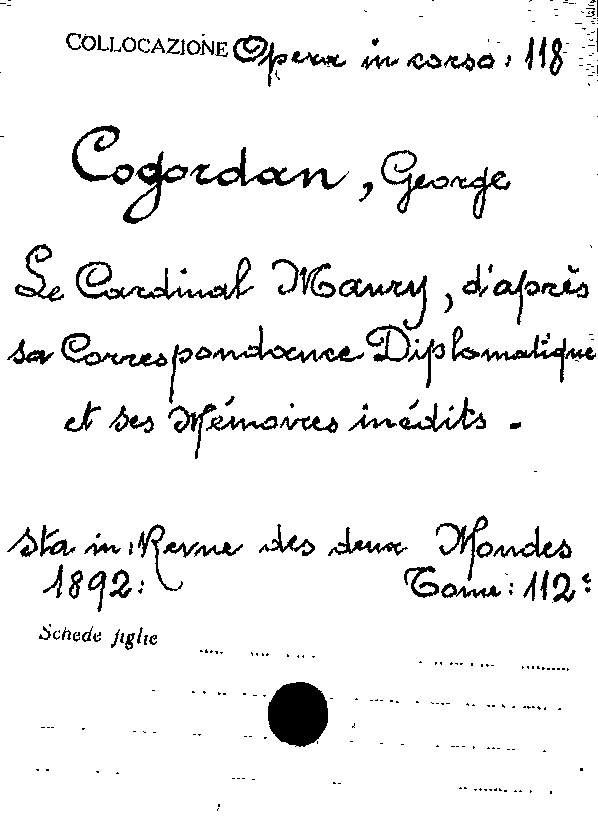 COLLOCAZIONE Opera in corso: 118
Cogordan, George
Le Cardinal Maury, d'après
sa Correspondance Diplomatique
et ses Mémoires inédits.
sta in: Revue des deux Mondes
1892: Tome: 112e
Schede figlie